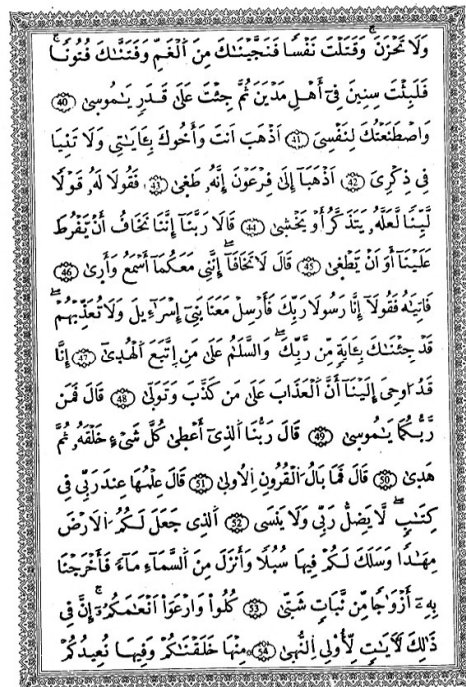 وَلَا تَحْزَنَ وَقَتَلْتَ نَفْسًا فَنَجَّيْنَاكَ مِنَ اَ۬لْغَمِّ وَفَتَنَّاكَ فُتُونًا
فَلَبِثْتَ سِنِينَ فِےٓ أَهْلِ مَدْيَنَ ثُمَّ جِئْتَ عَلَىٰ قَدَرٍ يَٰمُوسَىٰ 40
وَاصْطَنَعْتُكَ لِنَفْسِيَ 41 اَ۪ذْهَبَ اَنتَ وَأَخُوكَ بِـَٔايَٰتِے وَلَا تَنِيَا
فِے ذِكْرِيَ 42 اَ۪ذْهَبَآ إِلَىٰ فِرْعَوْنَ إِنَّهُۥ طَغَىٰ 43 فَقُولَا لَهُۥ قَوْلًا
لَّيِّنًا لَّعَلَّهُۥ يَتَذَكَّرُ أَوْ يَخْشَىٰ 44 قَالَا رَبَّنَآ إِنَّنَا نَخَافُ أَنْ يَّفْرُطَ
عَلَيْنَآ أَوْ اَنْ يَّطْغَىٰ 45 قَالَ لَا تَخَافَآ إِنَّنِے مَعَكُمَآ أَسْمَعُ وَأَرَىٰ 46
فَاتِيَٰهُ فَقُولَآ إِنَّا رَسُولَا رَبِّكَ فَأَرْسِلْ مَعَنَا بَنِےٓ إِسْرَآءِيلَ وَلَا تُعَذِّبْهُمْ
قَدْ جِئْنَٰكَ بِـَٔايَةٍ مِّن رَّبِّكَ وَالسَّلَٰمُ عَلَىٰ مَنِ اِ۪تَّبَعَ اَ۬لْهُدَىٰٓ 47 إِنَّا
قَدُ ا۟وحِيَ إِلَيْنَآ أَنَّ اَ۬لْعَذَابَ عَلَىٰ مَن كَذَّبَ وَتَوَلَّىٰ 48 قَالَ فَمَن
رَّبُّكُمَا يَٰمُوسَىٰ 49 قَالَ رَبُّنَا اَ۬لذِےٓ أَعْطَىٰ كُلَّ شَےْءٍ خَلْقَهُۥ ثُمَّ
هَدَىٰ 50 قَالَ فَمَا بَالُ اُ۬لْقُرُونِ اِ۬لُاولَىٰ 51 قَالَ عِلْمُهَا عِندَ رَبِّے فِے
كِتَٰبٍ لَّا يَضِلُّ رَبِّے وَلَا يَنسَى 52 اَ۬لذِے جَعَلَ لَكُمُ اُ۬لَارْضَ
مِهَٰدًا وَسَلَكَ لَكُمْ فِيهَا سُبُلًا وَأَنزَلَ مِنَ اَ۬لسَّمَآءِ مَآءً فَأَخْرَجْنَا
بِهِۦٓ أَزْوَٰجًا مِّن نَّبَاتٍ شَتَّىٰ 53 كُلُوا۟ وَارْعَوَا۟ اَنْعَٰمَكُمُۥٓ إِنَّ فِے
ذَٰلِكَ لَأٓيَٰتٍ لِّأُو۟لِے اِ۬لنُّهَىٰ 54 مِنْهَا خَلَقْنَٰكُمْ وَفِيهَا نُعِيدُكُمْ